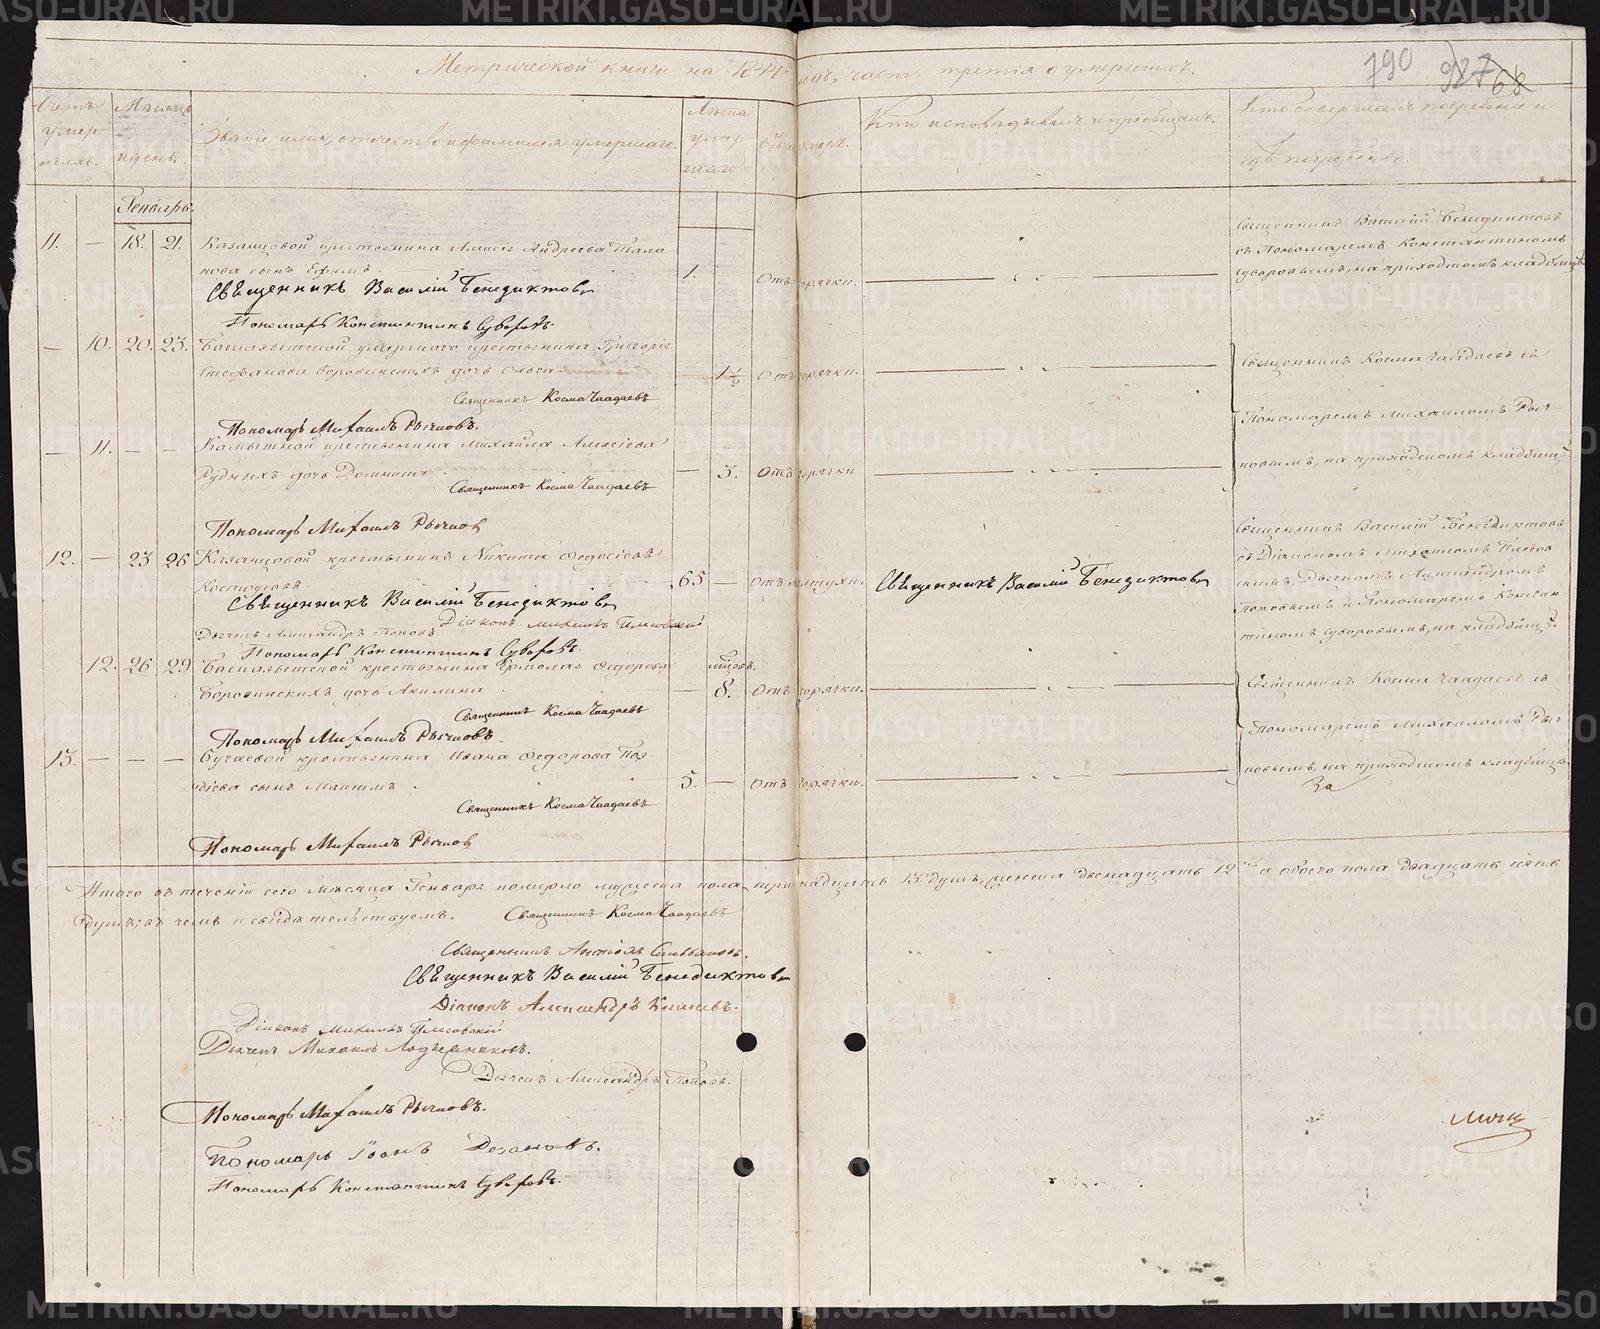 Метрической книги на 1844й годъ, часть третія о умершихъ.
190 927 68
Счетъ умершихъ.
Мѣсяцъ и день.
Званіе, имя, отчество и фамилія умершаго.
Лѣта умершаго
Отъ чего умеръ.
Кто исповѣдывалъ и пріобщалъ.
Кто совершалъ погребеніе и
гдѣ погребены.
Генварь.
11. — 18. 21. Казанцовой крестьянина Алексія Андреева Тала
нова сынъ Ефимъ. 1. Отъ горячки.
Священникъ Василій Бенедиктовъ
Пономарь Константинъ Суворовъ.
Священникъ Василій Бенедиктовъ
съ Пономаремъ Константиномъ
Суворовымъ, на приходскомъ кладбищѣ
— 10. 20. 23. умершаго крестьянина Григорія
Стефанова Боровинскихъ дочь Ольга. 1 1/2 Отъ горячки.
Священникъ Косма Чаадаевъ
Пономарь Михаилъ Рычковъ.
Священникъ Косма Чаадаевъ съ
Пономаремъ Михаиломъ Рыч-
ковымъ, на приходскомъ кладбищѣ
— 11. — — крестьянина Михаила Алексіева
Рудныхъ дочь Домника — 3. Отъ горячки
Священникъ Косма Чаадаевъ
Пономарь Михаилъ Рычковъ
12. — 23 26 Казанцовой крестьянинъ Никита Ѳедосіевъ
65 — Отъ
Священникъ Василій Бенедиктовъ
Священникъ Василій Бенедиктовъ
Діаконъ Михаилъ
Дьячекъ Александръ Поповъ
Пономарь Константинъ Суворовъ.
Священникъ Василій Бенедиктовъ
съ Діакономъ Михаиломъ
Дьячкомъ Александромъ
Поповымъ и Пономаремъ Констан-
тиномъ Суворовымъ, на кладбищѣ.
12. 26 29 крестьянина Ермолая Ѳедорова
Боровинскихъ дочь Акилина — мѣсяц. 8. Отъ горячки.
Священникъ Косма Чаадаевъ
Пономарь Михаилъ Рычковъ
Священникъ Косма Чаадаевъ съ
Пономаремъ Михаиломъ Рыч
ковымъ, на приходскомъ кладбищѣ.
13. — — — крестьянина Ивана Ѳедорова
сынъ Максимъ. 5. — Отъ горячки.
Священникъ Косма Чаадаевъ
Пономарь Михаилъ Рычковъ
Итого въ теченіи сего мѣсяца Генваря померло мужеска пола тринадцать 13 душъ, женска двенадцать 12 а обоего пола двадцать пять
душъ; въ чемъ и свидѣтельствуемъ. Священникъ Косма Чаадаевъ
Священникъ
Священникъ Василій Бенедиктовъ
Діаконъ Александръ
Діаконъ Михаилъ
Дьячекъ Михаилъ
Дьячекъ Александръ Поповъ.
Пономарь Михаилъ Рычковъ.
Пономарь Іоаннъ
Пономарь Константинъ Суворовъ.
METRIKI.GASO-URAL.RU